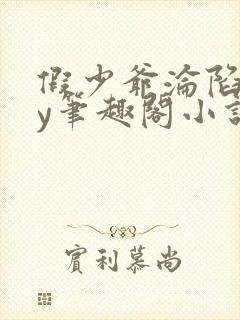 假少爷沦陷
y笔趣阁小说
宾利慕尚